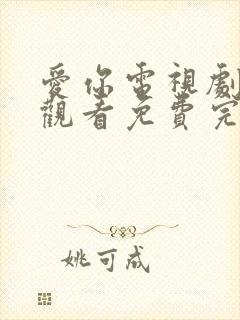 愛你電視劇
觀看免費完
姚可成